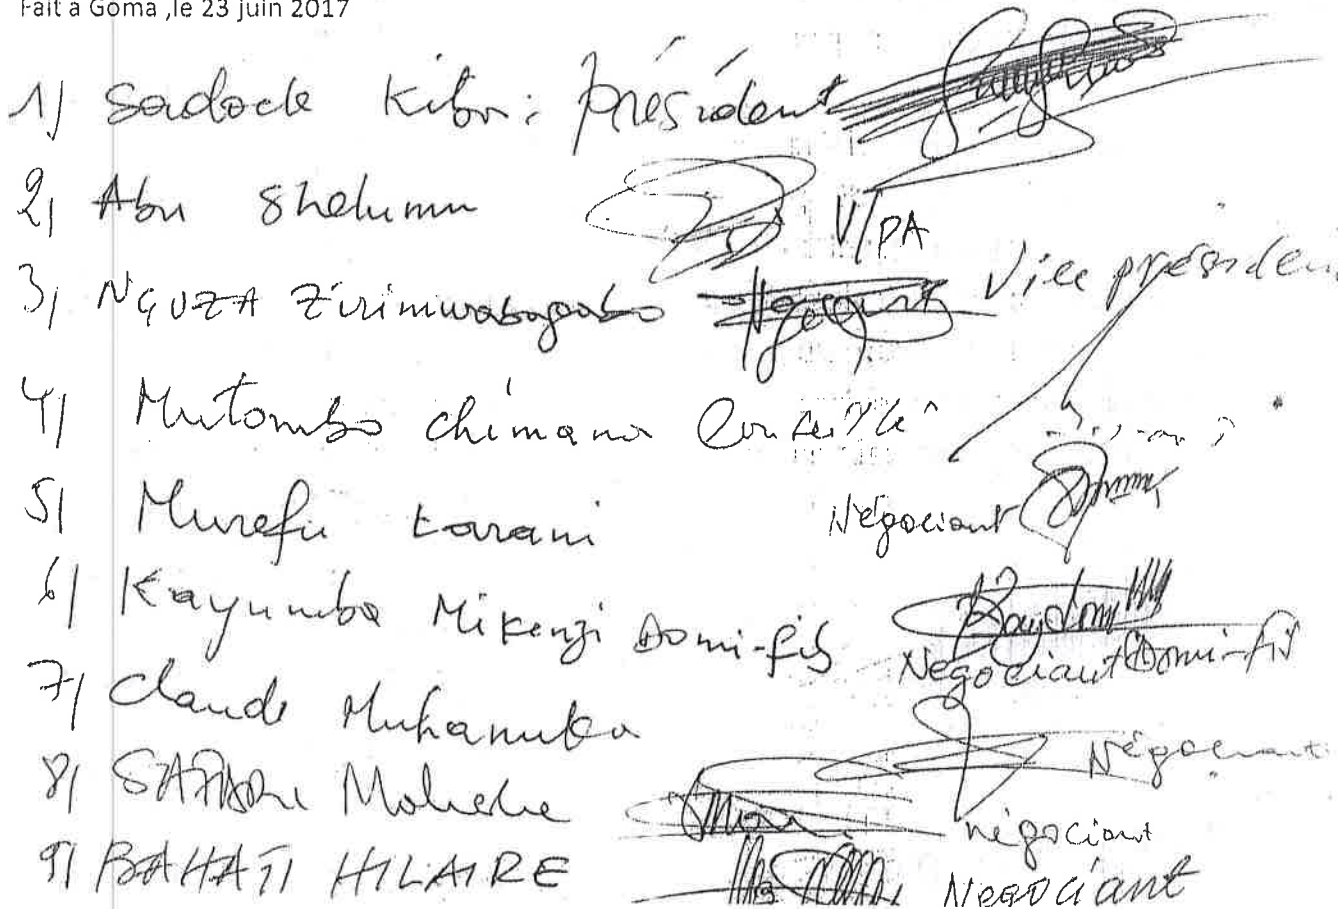 Fait a Goma ,le 23 juin 2017
1) Sadock Kibri : président
2) Abu Shelumu V/PA
3) NGUZA Zirimwabagabo Vice président
4) Mutombo chimana Conseillé
5) Murefu Karani Négociant
6) Kayumba Mikenzi Domi-fils Négociant Domi-fils
7) Claude Muhanuka Négociant
8) SAFARI Moheshe négociant
9) BAHATI HILAIRE Negociant